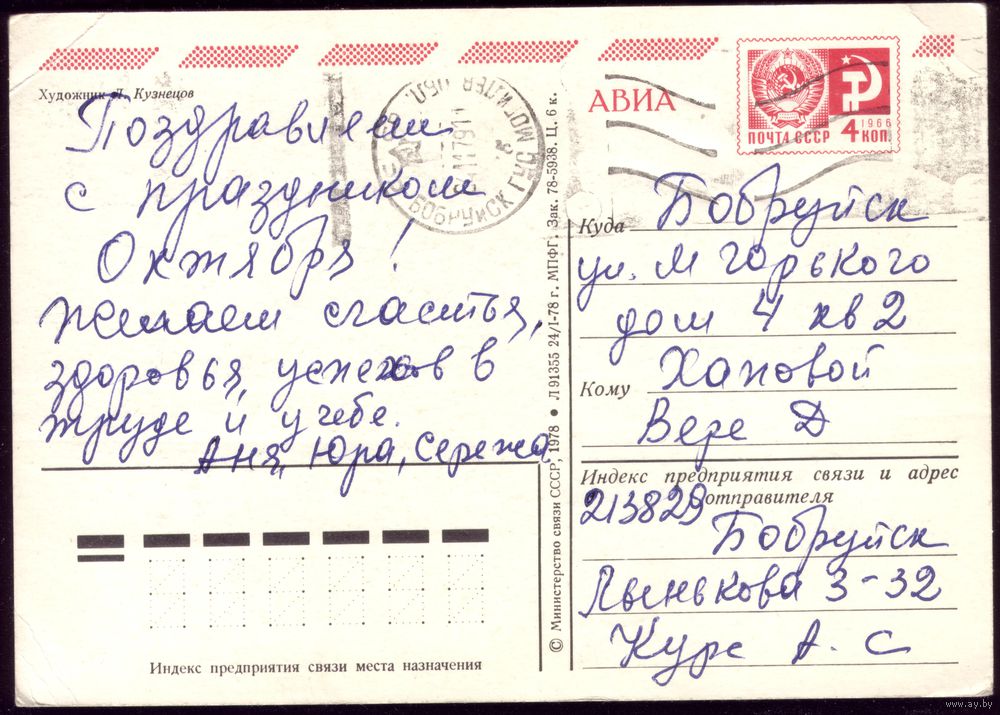 Художник Л. Кузнецов
Поздравляем
с праздником
Октября!
Желаем счастья,
здоровья, успехов в
труде и учебе.
Аня, Юра, Сережа.
Индекс предприятия связи места назначения
© Министерство связи СССР, 1978 ● Л 91355 24/I-78 г. МПФГ. Зак. 78-5938. Ц. 6 к.
БОБРУЙСК
АВИА
1966
ПОЧТА СССР 4 КОП.
Куда Бобруйск
ул. М Горького
дом 4 кв 2
Кому Хаповой
Вере Д
Индекс предприятия связи и адрес
213829 отправителя
Бобруйск
Лынькова 3-32
Курс А. С
www.ay.by